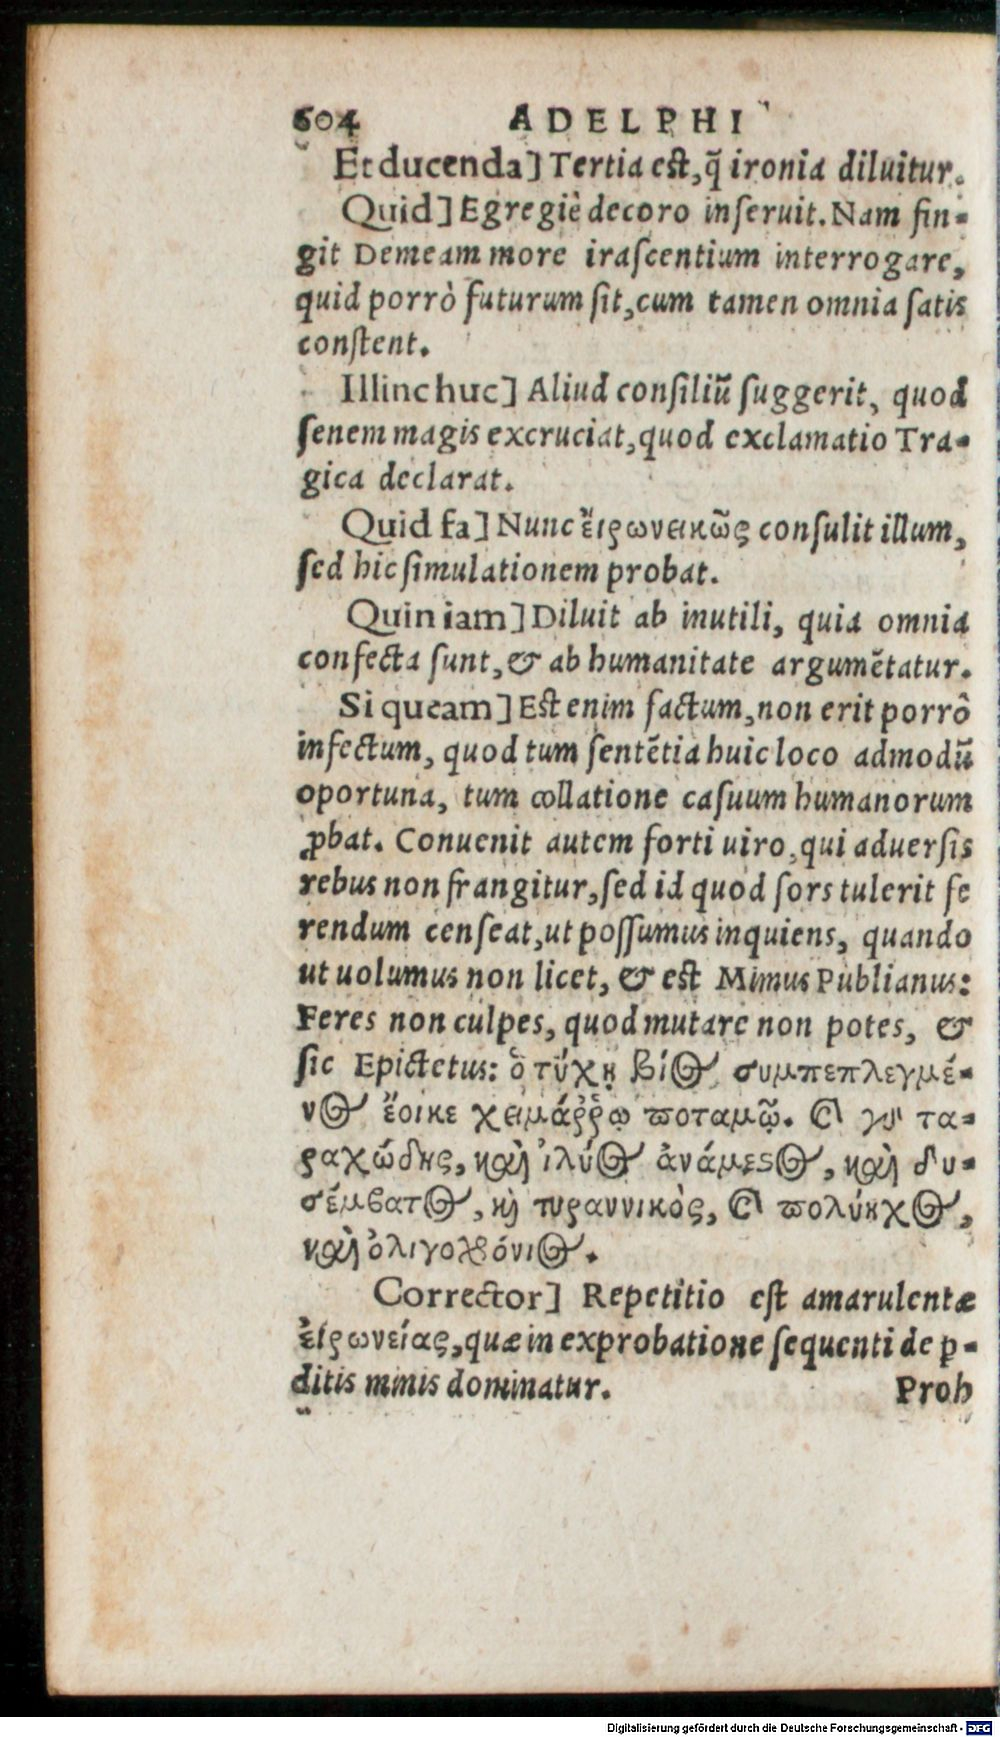 604 ADELPHI
Et ducenda] Tertia est, q̃ ironia diluitur.
Quid] Egregiè decoro inseruit. Nam fin-
git Demeam more irascentium interrogare,
quid porrò futurum sit, cum tamen omnia satis
constent.
Illinc huc] Aliud consiliũ suggerit, quod
senem magis excruciat, quod exclamatio Tra-
gica declarat.
Quid fa] Nunc ἔιρωνεικῶς consulit illum,
sed hic simulationem probat.
Quin iam] Diluit ab inutili, quia omnia
confecta sunt, & ab humanitate argumẽtatur.
Si queam] Est enim factum, non erit porrô
infectum, quod tum sentẽtia huic loco admodũ
oportuna, tum collatione casuum humanorum
ꝓbat. Conuenit autem forti uiro, qui aduersis
rebus non frangitur, sed id quod sors tulerit fe
rendum censeat, ut possumus inquiens, quando
ut uolumus non licet, & est Mimus Publianus:
Feres non culpes, quod mutare non potes, &
sic Epictetus: ὁ τύχῃ βίος συμπεπλεγμέ-
νος ἔοικε χειμάῤῥῳ ποταμῷ. Καὶ γὰρ τα-
ραχώδης, καὶ ἰλύος ἀνάμεστος, καὶ δυ-
σέμβατος, καὶ τυραννικὸς, καὶ πολύηχος,
καὶ ὀλιγοχρόνιος.
Corrector] Repetitio est amarulentæ
ἐίρωνείας, quæ in exprobatione sequenti de ꝑ-
ditis minis dominatur. Proh
Digitalisierung gefördert durch die Deutsche Forschungsgemeinschaft - DFG